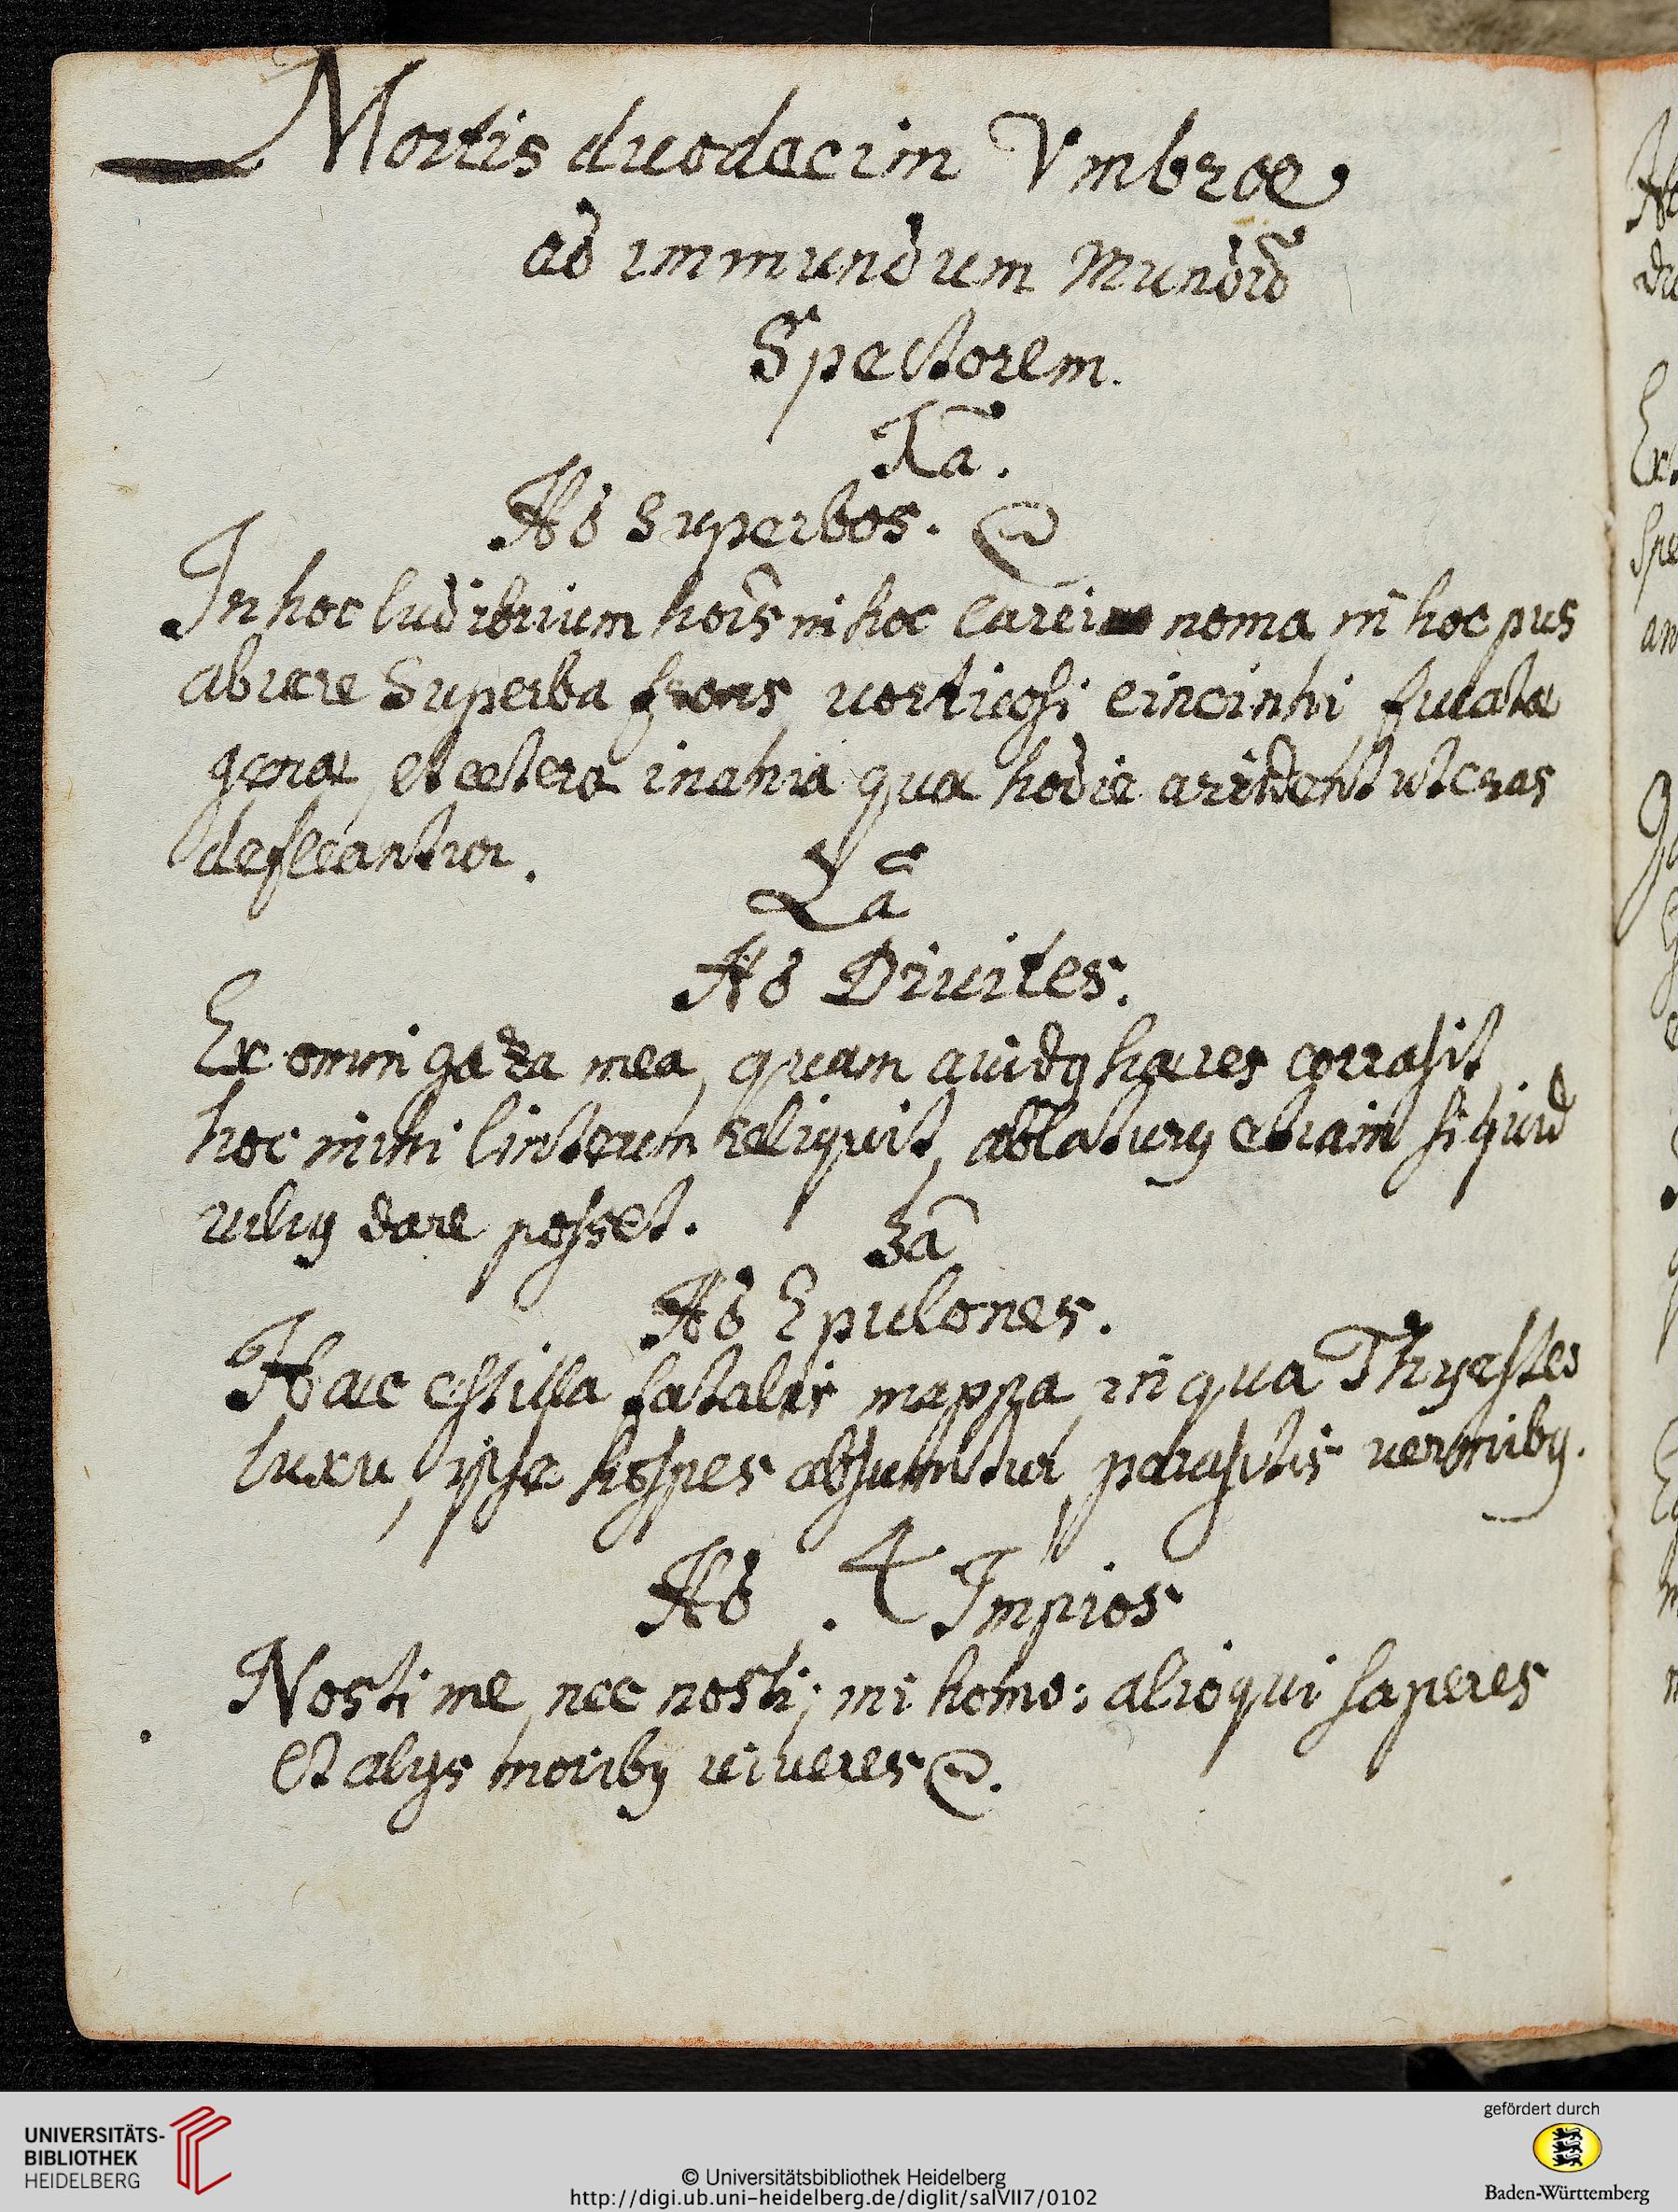 Mortis duodecim Vmbrae
ad immundum Mundi
Spectorem.
1ā.
Ad Superbos.
In hoc ludibrium horis in hoc noma, in hoc pus
abiere Superba frons, vorticosi cincinni, fucatæ
genæ, et cætera inania quæ hodie arrident ut cras
defleantur.
2ā
Ad Diuites.
Ex omni gaza mea, quam auidq hæres corrasit,
hoc mihi linteum reliquit, ablaturq etiam siquid
viliq dare posset.
3ā
Ad Epulones.
Hæc est illa fatalis mappa, in qua Thyestes
luxu, ipse hospes absumitur, parasitis vermibq.
Ad . 4 Impios
Nosti me, nec nosti; mi homo: alioqui saperes
Et alijs moribq viueres
UNIVERSITÄTS-
BIBLIOTHEK
HEIDELBERG
© Universitätsbibliothek Heidelberg
http://digi.ub.uni-heidelberg.de/diglit/salVII7/0102
gefördert durch
Baden-Württemberg